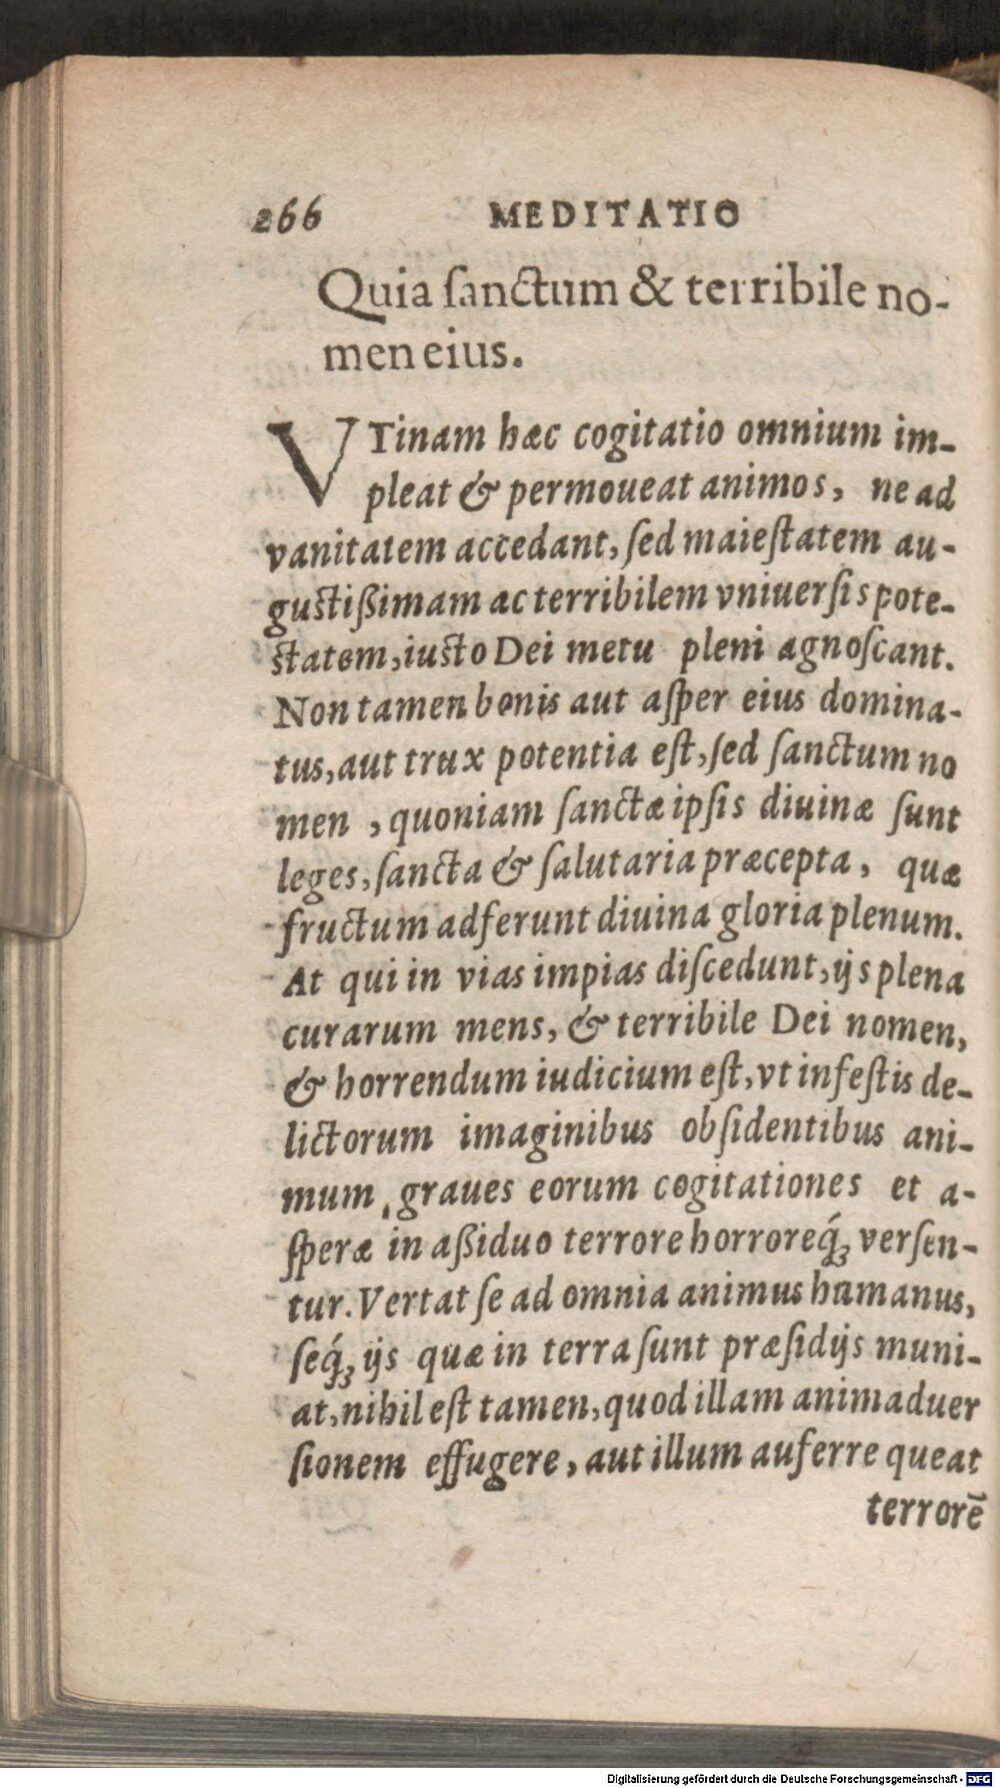 266 MEDITATIO
Quia ſanctum & terribile no-
men eius.
VTinam hæc cogitatio omnium im-
pleat & permoueat animos, ne ad
vanitatem accedant, ſed maieſtatem au-
guſtißimam ac terribilem vniuerſis pote-
ſtatem, iuſto Dei metu pleni agnoſcant.
Non tamen bonis aut aſper eius domina-
tus, aut trux potentia eſt, ſed ſanctum no
men, quoniam ſanctæ ipſis diuinæ ſunt
leges, ſancta & ſalutaria præcepta, quæ
fructum adferunt diuina gloria plenum.
At qui in vias impias diſcedunt, ijs plena
curarum mens, & terribile Dei nomen,
& horrendum iudicium eſt, vt infeſtis de-
lictorum imaginibus obſidentibus ani-
mum, graues eorum cogitationes et a-
ſperæ in aßiduo terrore horroreq́ꝫ verſen-
tur. Vertat ſe ad omnia animus humanus,
ſeq́ꝫ ijs quæ in terra ſunt præſidijs muni-
at, nihil eſt tamen, quod illam animaduer
ſionem effugere, aut illum auferre queat
terrorē
Digitalisierung gefördert durch die Deutsche Forschungsgemeinschaft - DFG